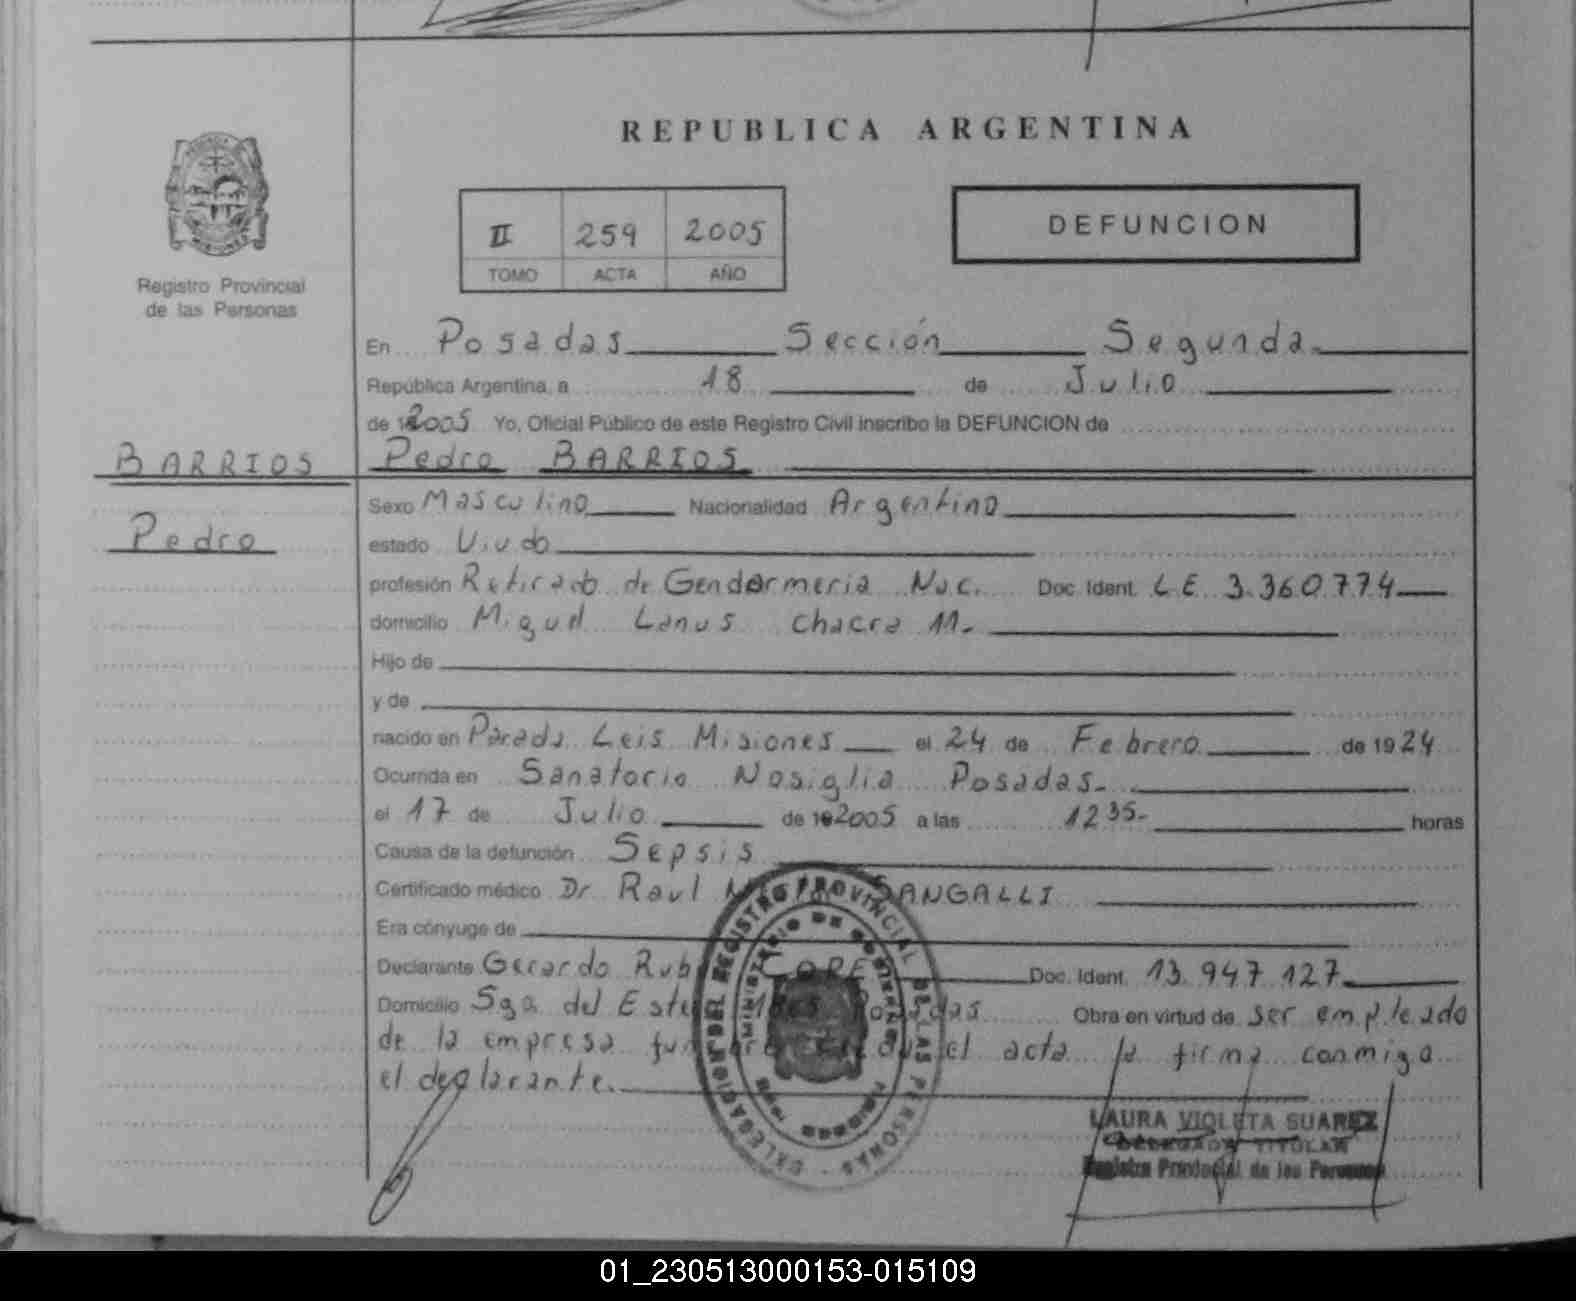 REPUBLICA ARGENTINA
II 259 2005
TOMO ACTA AÑO
DEFUNCION
Registro Provincial
de las Personas
En Posadas Sección Segunda
República Argentina, a 18 de Julio
de 2005 Yo, Oficial Público de este Registro Civil inscribo la DEFUNCION de
BARRIOS
Pedro
Pedro BARRIOS
Sexo Masculino Nacionalidad Argentino
estado Viudo
profesión Retirado de Gendarmeria Nac. Doc. Ident. L E 3.360.774
domicilio Miguel Lanus Chacra 11.
Hijo de
y de
nacido en Parada Leis Misiones el 24 de Febrero de 1924
Ocurrida en Sanatorio Nosiglia Posadas.
el 17 de Julio de 2005 a las 12 35 horas
Causa de la defunción Sepsis
Certificado médico Dr. Raul SANGALLI
Era cónyuge de
Declarante Gerardo Doc. Ident. 13.947.127
Domicilio Sgo. del Estero Posadas Obra en virtud de ser empleado
de la empresa el acta la firma conmigo
el declarante.
DELEGACION DEL REGISTRO PROVINCIAL DE LAS PERSONAS
MINISTERIO DE GOBIERNO
LAURA VIOLETA SUAREZ
DELEGADA TITULAR
Registro Provincial de las Personas
01_230513000153-015109